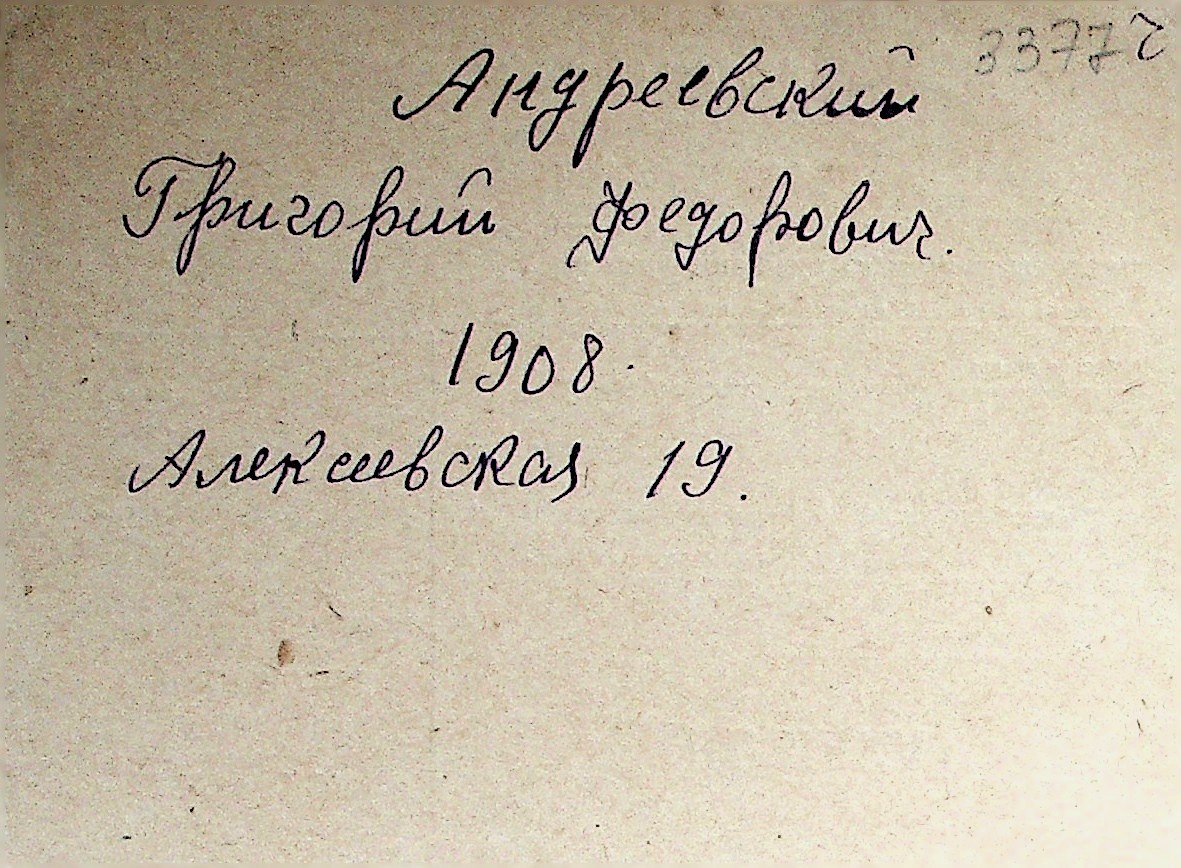 3377г
Андреевский
Григорий Федорович.
1908.
Алексеевская 19.